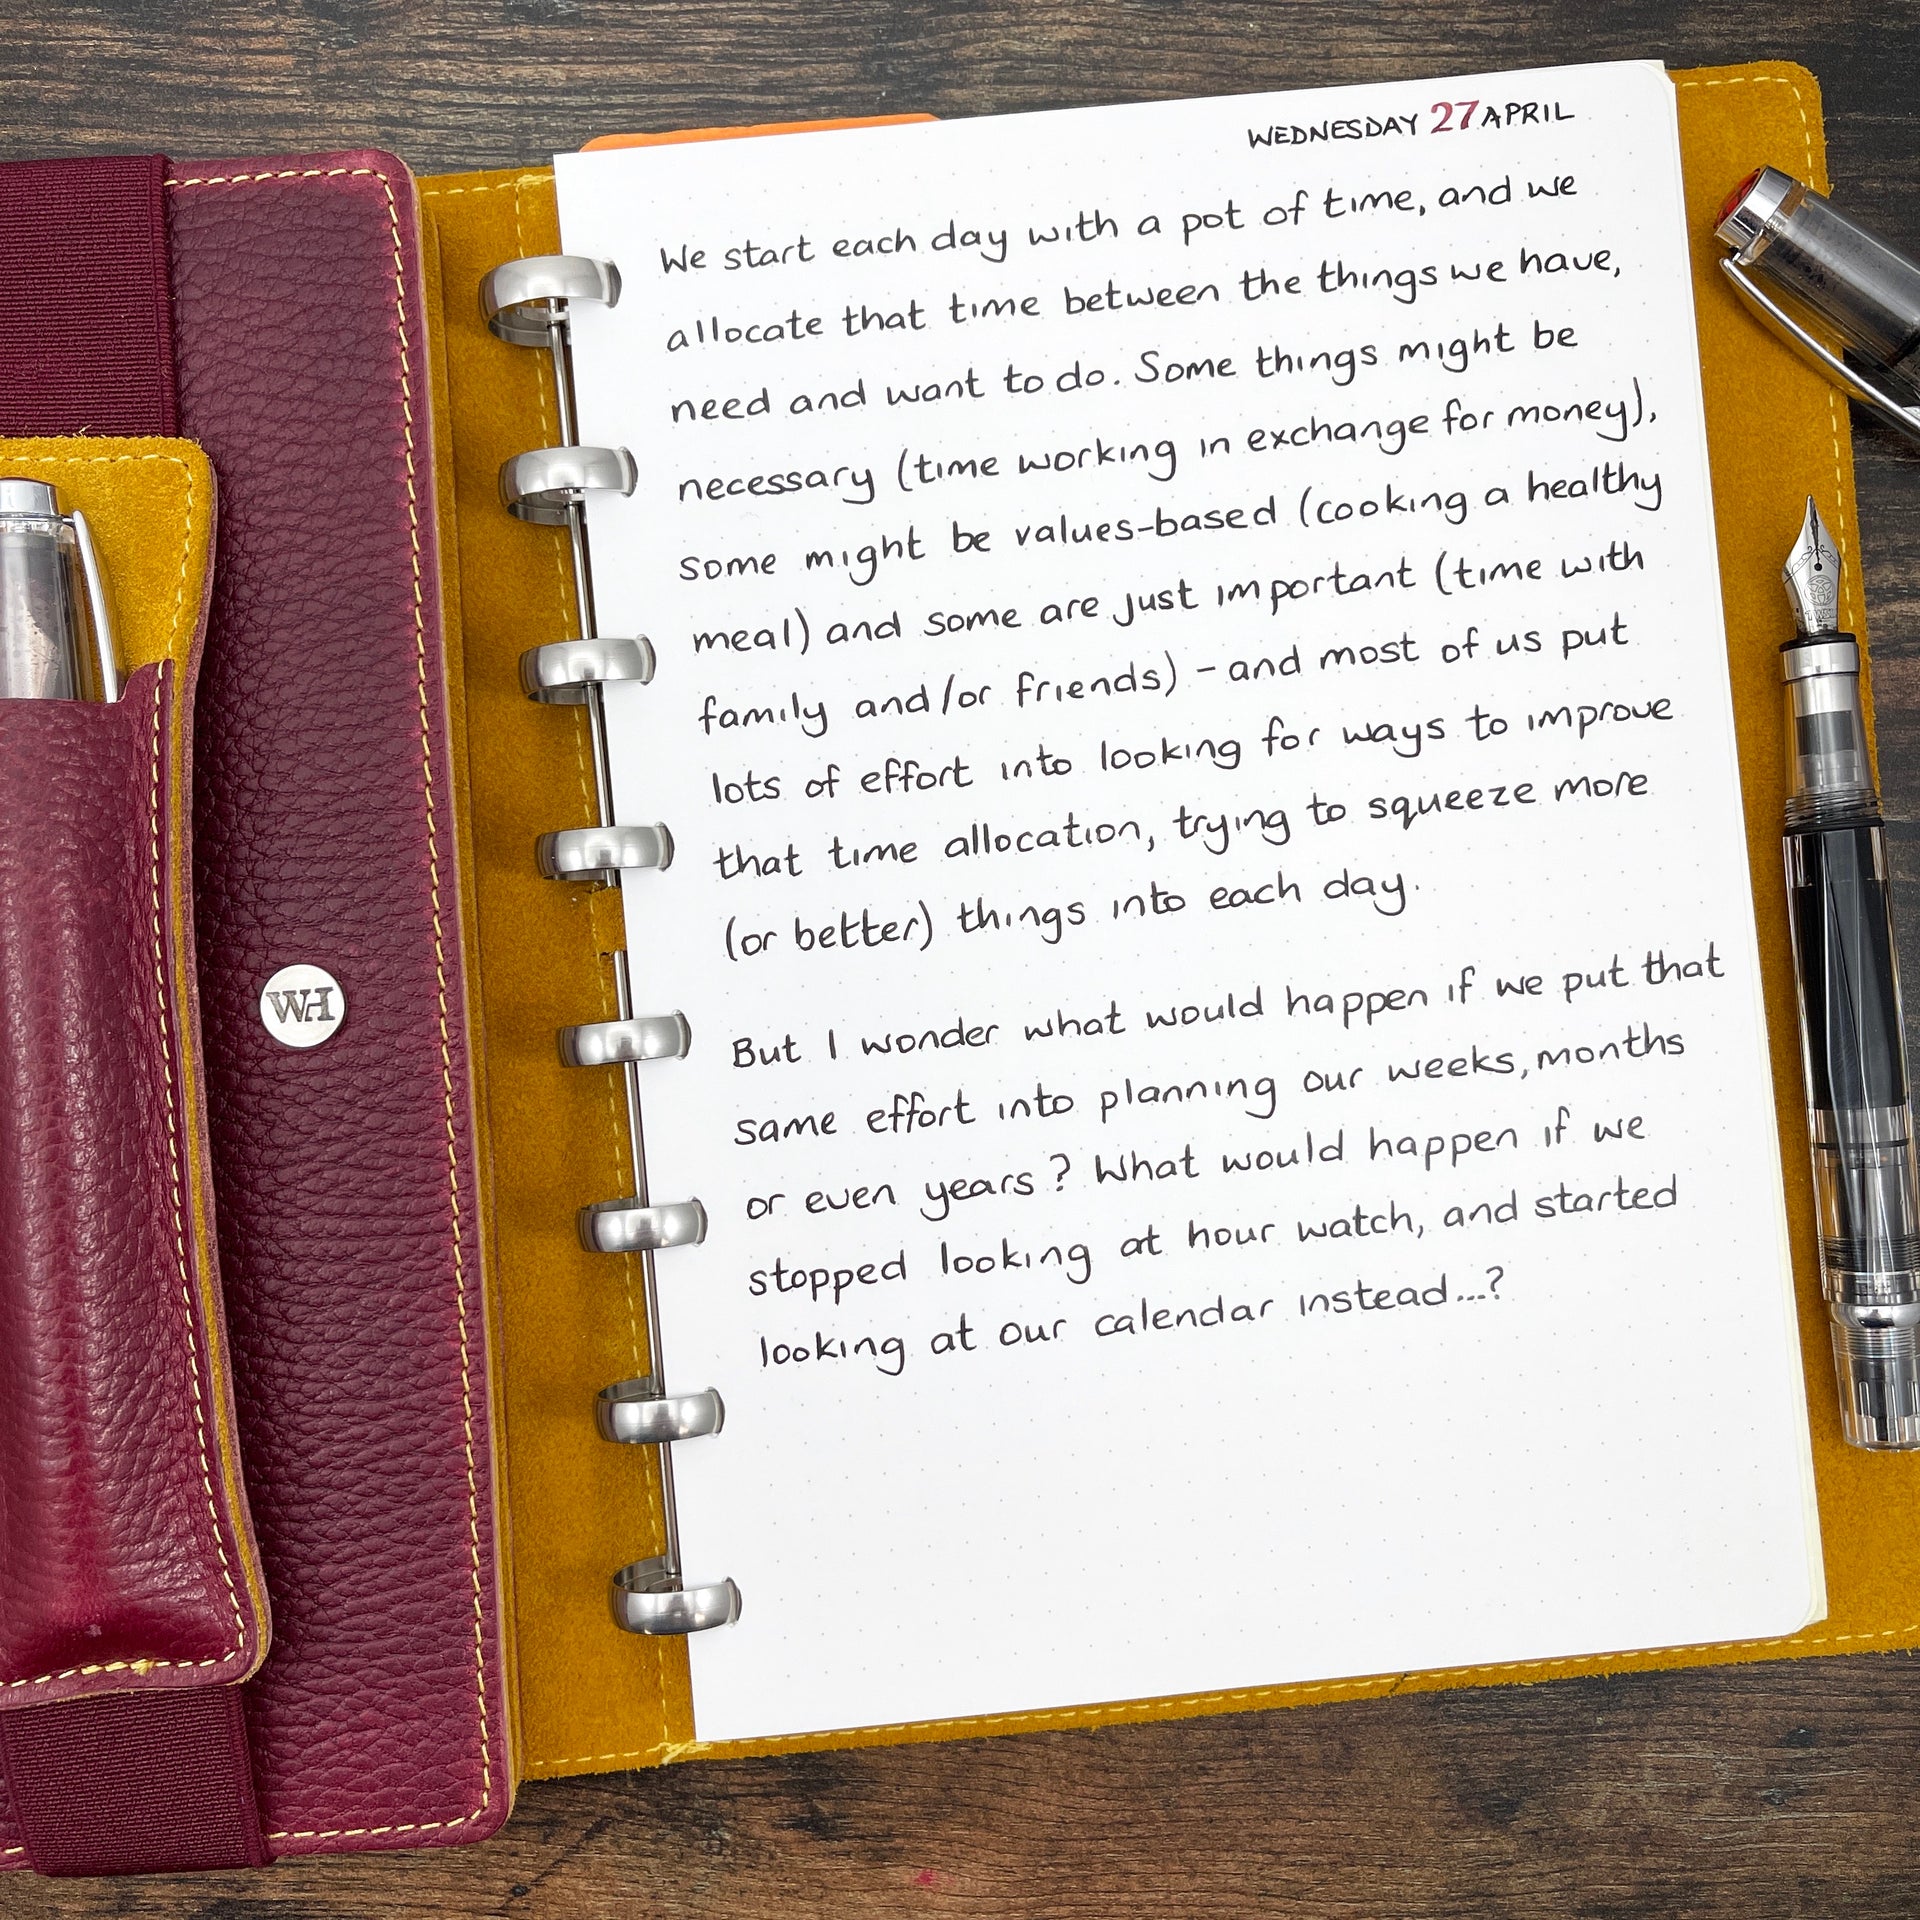 WEDNESDAY 27 APRIL
We start each day with a pot of time, and we
allocate that time between the things we have,
need and want to do. Some things might be
necessary (time working in exchange for money),
some might be values-based (cooking a healthy
meal) and some are just important (time with
family and/or friends) - and most of us put
lots of effort into looking for ways to improve
that time allocation, trying to squeeze more
(or better) things into each day.
But I wonder what would happen if we put that
same effort into planning our weeks, months
or even years? What would happen if we
stopped looking at hour watch, and started
looking at our calendar instead...?
WH